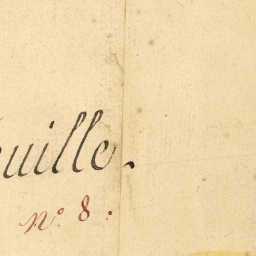 uille.
n.° 8 :